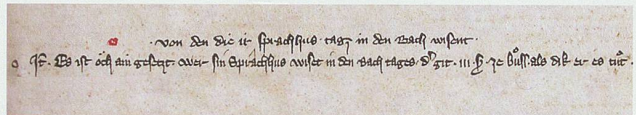 von den die ir sprachhus tags in den Bach wisent
It. Es ist och ain gesetzt wer sin Sprachhus wiset in den Bach tages. dˢ git. iii. ß. ze buͦss. als dik er es tuͦt.